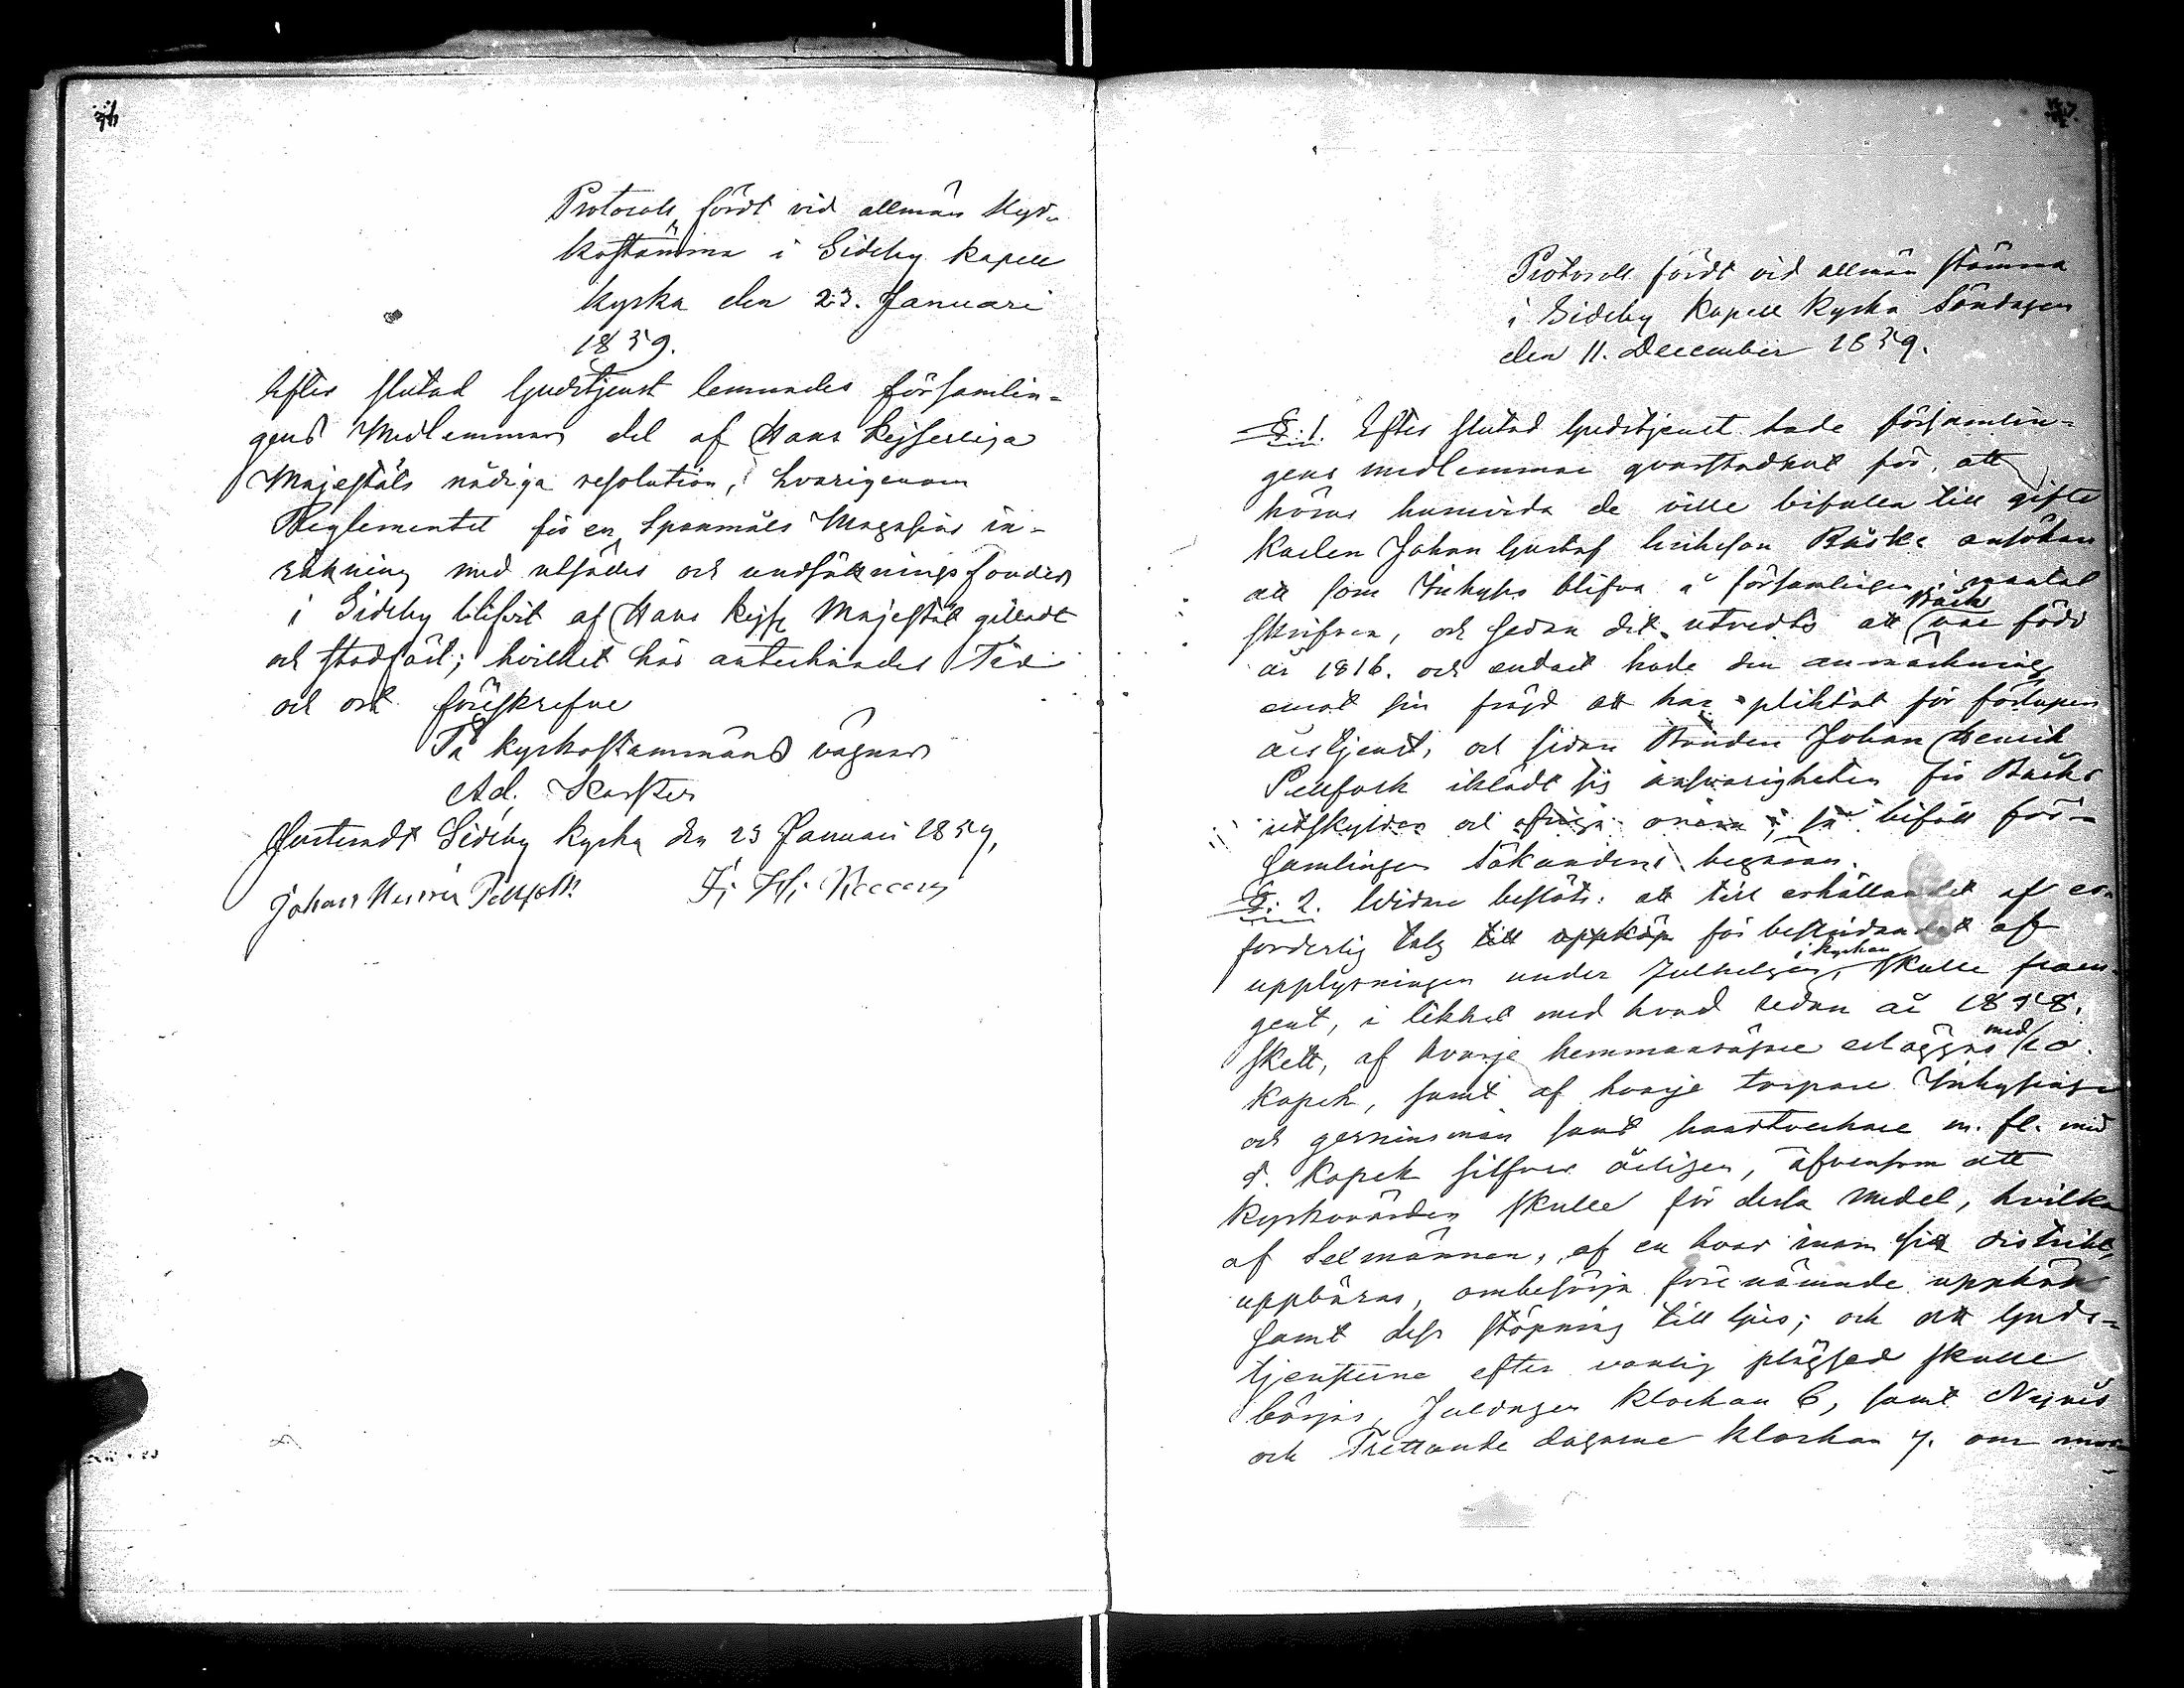 Protocoll, fördt vid allmän Kyr-
kostämma i Sideby kapell
kyrka den 23. Januari
1859.
Efter slutad Gudstjenst lemnades församlin-
gens Medlemmar del af Hans Kejserliga
Majestäts nådiga resolution, hvarigenom
Reglementet för en Spanmåls Magasins in-
rättning med utsädes och undsättnings fonder
i Sideby blifvit af Hans Kejs Majestät gilladt
och stadfäst; hvilket här antecknades Tid
och ort föreskrefne
På kyrkostämmans vägnar
Ad. Karsten
Justeradt Sideby kyrka den 23 Januari 1859,
Johan Henrik Pellfolk
Protocoll fördt vid allmän stämma
i Sideby Kapell kyrka Söndagen
den 11. December 1859.
§. 1. Efter slutad Gudstjenst hade församlin-
gens medlemmar qvarstadnat för att
höras huruvida de ville bifalla till gifte
Karlen Johan Gustaf Erikson Bäcks ansökan
att som Inhyses blifva i församlingen i mantal
skrifven, och sedan det utredts att Bäck var född
år 1816. och endast hade den anmärkning
emot sin fräjd att har pliktat för förlupen
årstjenst, och sidan Bonden Johan Henrik
Pellfolk iklädt sig ansvarigheten för Bäcks
utskylder och öfriga så biföll för-
samlingen sökandens begäran.
§. 2. Widare beslöts: att till erhållandet af er-
forderlig talg till uppköp för bestridandet af
upplysningen under Julhelgen, i kyrkan skulle fram-
gent, i likhet med hvad redan år 1858.
skett, af hvarje hemmansägare erläggas med 10.
kopek, samt af hvarje torpare Inhysing
och gerningsman samt handtverkare m. fl. med
5. Kopek silfver årligen, äfvensom att
kyrkovärden skulle för dessa medel, hvilka
af Sexmännen, af en hvar inom sitt distrikt,
uppbäras, ombesörja förenämnde uppköp
samt dess stöpning till ljus; och att Guds-
tjensterne efter vanlig plägsed skulle
börjas, Juldagen klockan 6, samt Nyårs
och Trettonde dagarne klockan 7. om mor-